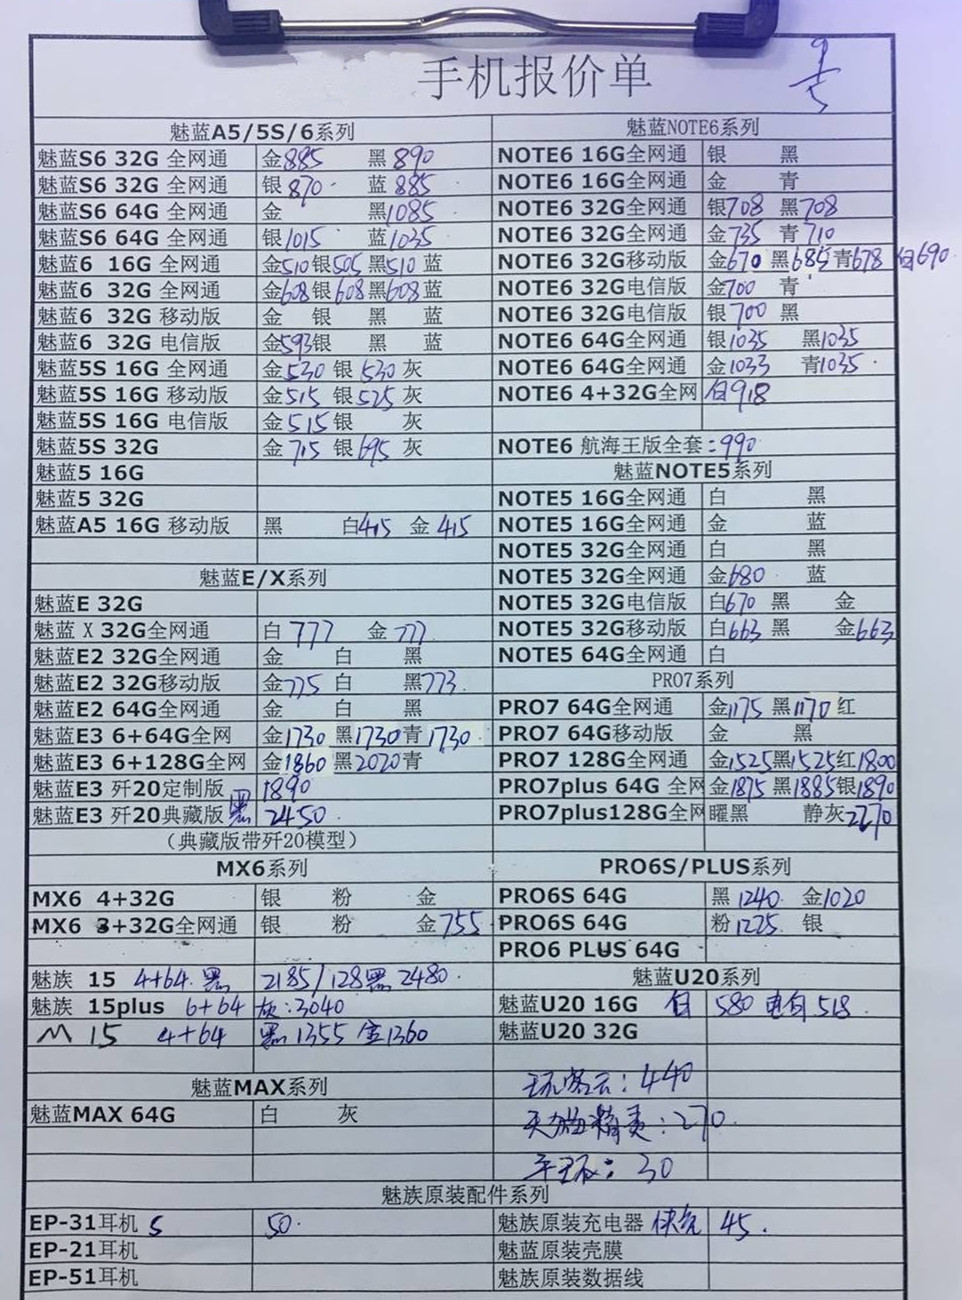 手机报价单
9/5
魅蓝A5/5S/6系列
魅蓝S6 32G 全网通 金885 黑890
魅蓝S6 32G 全网通 银870 蓝885
魅蓝S6 64G 全网通 金 黑1085
魅蓝S6 64G 全网通 银1015 蓝1035
魅蓝6 16G 全网通 金510银505黑510蓝
魅蓝6 32G 全网通 金608银608黑608蓝
魅蓝6 32G 移动版 金 银 黑 蓝
魅蓝6 32G 电信版 金593银 黑 蓝
魅蓝5S 16G 全网通 金530 银530 灰
魅蓝5S 16G 移动版 金515 银525 灰
魅蓝5S 16G 电信版 金515银 灰
魅蓝5S 32G 金715 银695 灰
魅蓝5 16G
魅蓝5 32G
魅蓝A5 16G 移动版 黑 白415 金415
魅蓝E/X系列
魅蓝E 32G
魅蓝X 32G全网通 白777 金777
魅蓝E2 32G全网通 金 白 黑
魅蓝E2 32G移动版 金775 白 黑773
魅蓝E2 64G全网通 金 白 黑
魅蓝E3 6+64G全网 金1730 黑1730青1730
魅蓝E3 6+128G全网 金1860 黑2020青
魅蓝E3 歼20定制版 1890
魅蓝E3 歼20典藏版 黑 2450
（典藏版带歼20模型）
MX6系列
MX6 4+32G 银 粉 金
MX6 3+32G全网通 银 粉 金755
魅族 15 4+64 黑 2185/128黑 2480
魅族 15plus 6+64 灰:3040
M 15 4+64 黑1355 金1360
魅蓝MAX系列
魅蓝MAX 64G 白 灰
魅蓝NOTE6系列
NOTE6 16G全网通 银 黑
NOTE6 16G全网通 金 青
NOTE6 32G全网通 银708 黑708
NOTE6 32G全网通 金735 青710
NOTE6 32G移动版 金670 黑685青678 白690
NOTE6 32G电信版 金700 青
NOTE6 32G电信版 银700 黑
NOTE6 64G全网通 银1035 黑1035
NOTE6 64G全网通 金1033 青1035
NOTE6 4+32G全网 白918
NOTE6 航海王版全套:990
魅蓝NOTE5系列
NOTE5 16G全网通 白 黑
NOTE5 16G全网通 金 蓝
NOTE5 32G全网通 白 黑
NOTE5 32G全网通 金680 蓝
NOTE5 32G电信版 白670 黑 金
NOTE5 32G移动版 白663 黑 金663
NOTE5 64G全网通 白
PRO7系列
PRO7 64G全网通 金1175 黑1170红
PRO7 64G移动版 金 黑
PRO7 128G全网通 金1525黑1525红1800
PRO7plus 64G 全网 金1875 黑1885银1890
PRO7plus128G全网 曜黑 静灰2270
PRO6S/PLUS系列
PRO6S 64G 黑1240 金1020
PRO6S 64G 粉1225 银
PRO6 PLUS 64G
魅蓝U20系列
魅蓝U20 16G 白 580 电白518
魅蓝U20 32G
:440
:270
手环:30
魅族原装配件系列
EP-31耳机 S 50
EP-21耳机
EP-51耳机
魅族原装充电器 快充 45
魅蓝原装壳膜
魅族原装数据线